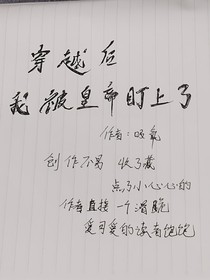 穿越后
我被皇帝盯上了
作者:
创作不易 收了藏
点了小心心的
作者直接一个滑跪
爱可爱的读者饱饱